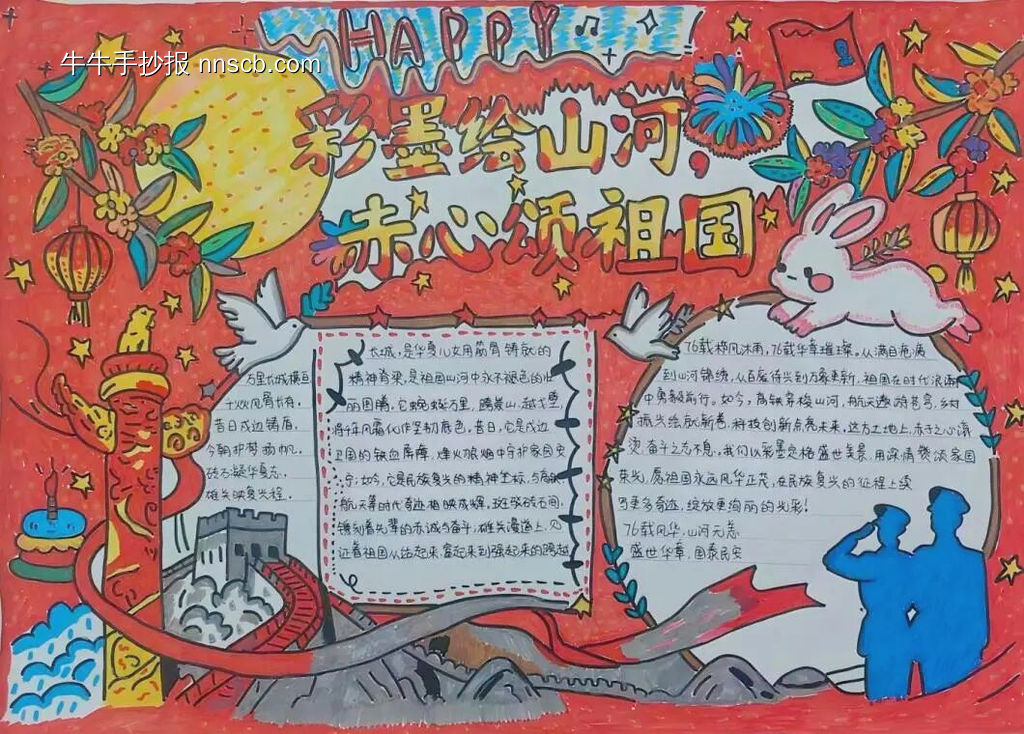 牛牛手抄报 nnscb.com
HAPPY
彩墨绘山河，
赤心颂祖国
万里长城横亘
千火风骨长存，
昔日戍边铸盾，
今朝护梦扬帆，
砖石凝华夏志，
雄关映复兴程。
长城，是华夏儿女用筋骨铸就的
精神脊梁，是祖国山河中永不褪色的壮
丽图腾。它蜿蜒万里，跨峻山，越戈壁，
将千年风霜化作坚韧底色。昔日，它是戍边
卫国的铁血屏障，烽火狼烟中守护家园安
宁；如今，它是民族复兴的精神坐标，与高铁
航天等时代奇迹相映成辉。斑驳砖石间，
镌刻着先辈的赤诚与奋斗，雄关漫道上，见
证着祖国从站起来、富起来到强起来的跨越
76载栉风沐雨，76载华章璀璨，从满目疮痍
到山河锦绣，从百废待兴到万象更新，祖国在时代浪潮
中勇毅前行。如今，高铁穿梭山河，航天遨游苍穹，乡村
振兴绘就新卷，科技创新点亮未来，这方土地上，赤子之心滚
烫，奋斗之志不息，我们以彩墨定格盛世美景，用深情赞颂家国
荣光，愿祖国永远风华正茂，在民族复兴的征程上续
写更多奇迹，绽放更绚丽的光彩！
76载风华，山河无恙
盛世华章，国泰民安